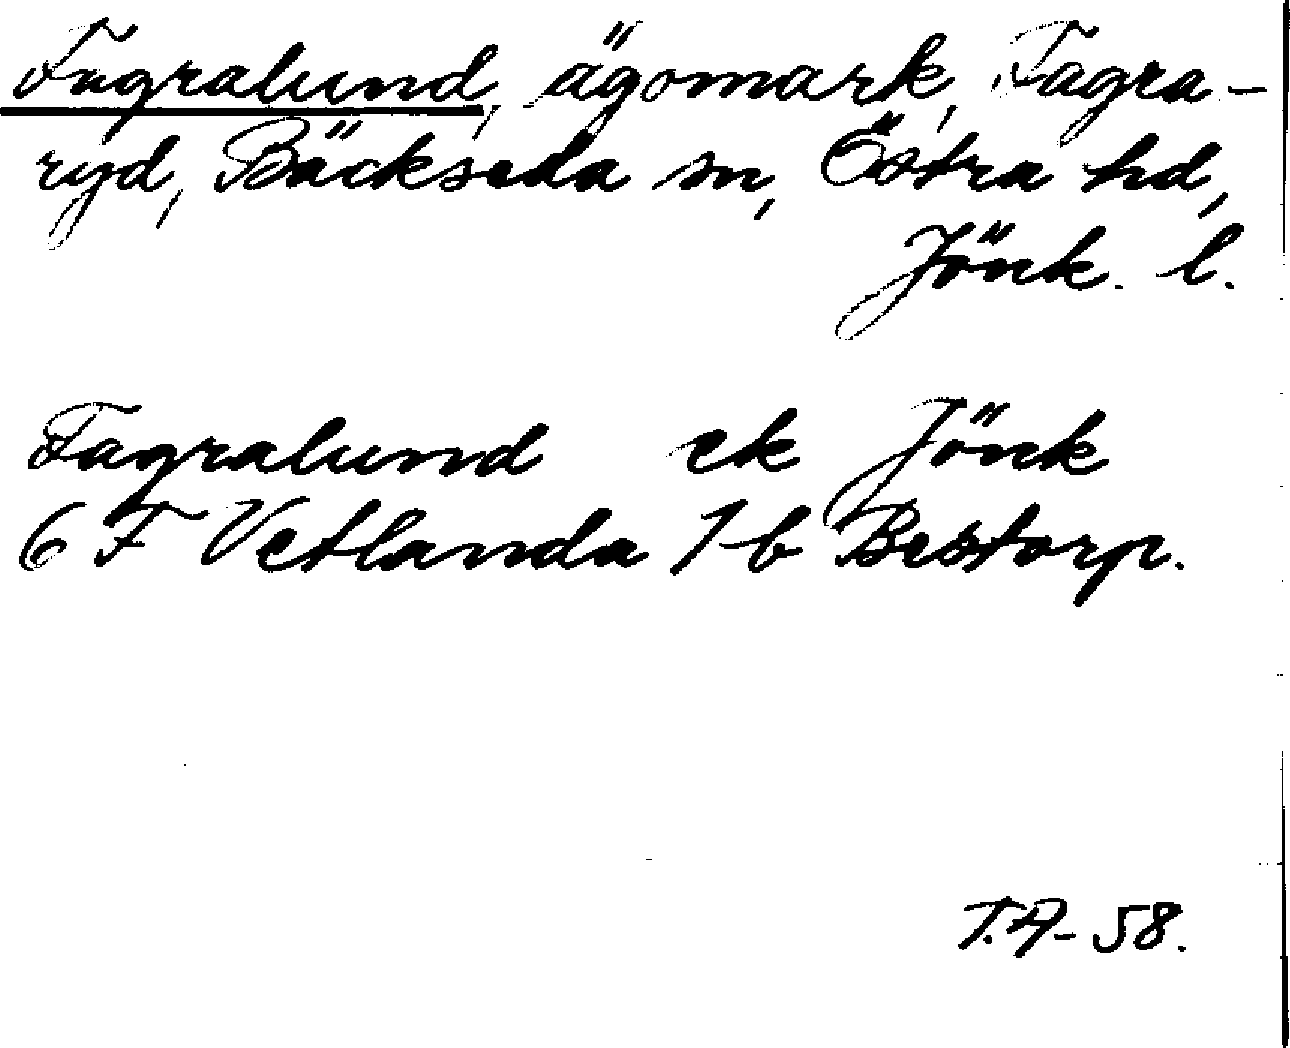 Fagralund, ägomark, Fagra-
ryd, Bäckseda sn, Östra hd,
Jönk. l.
Fagralund ek Jönk
6 F Vetlanda 1 b Bestorp.
T.A- 58.